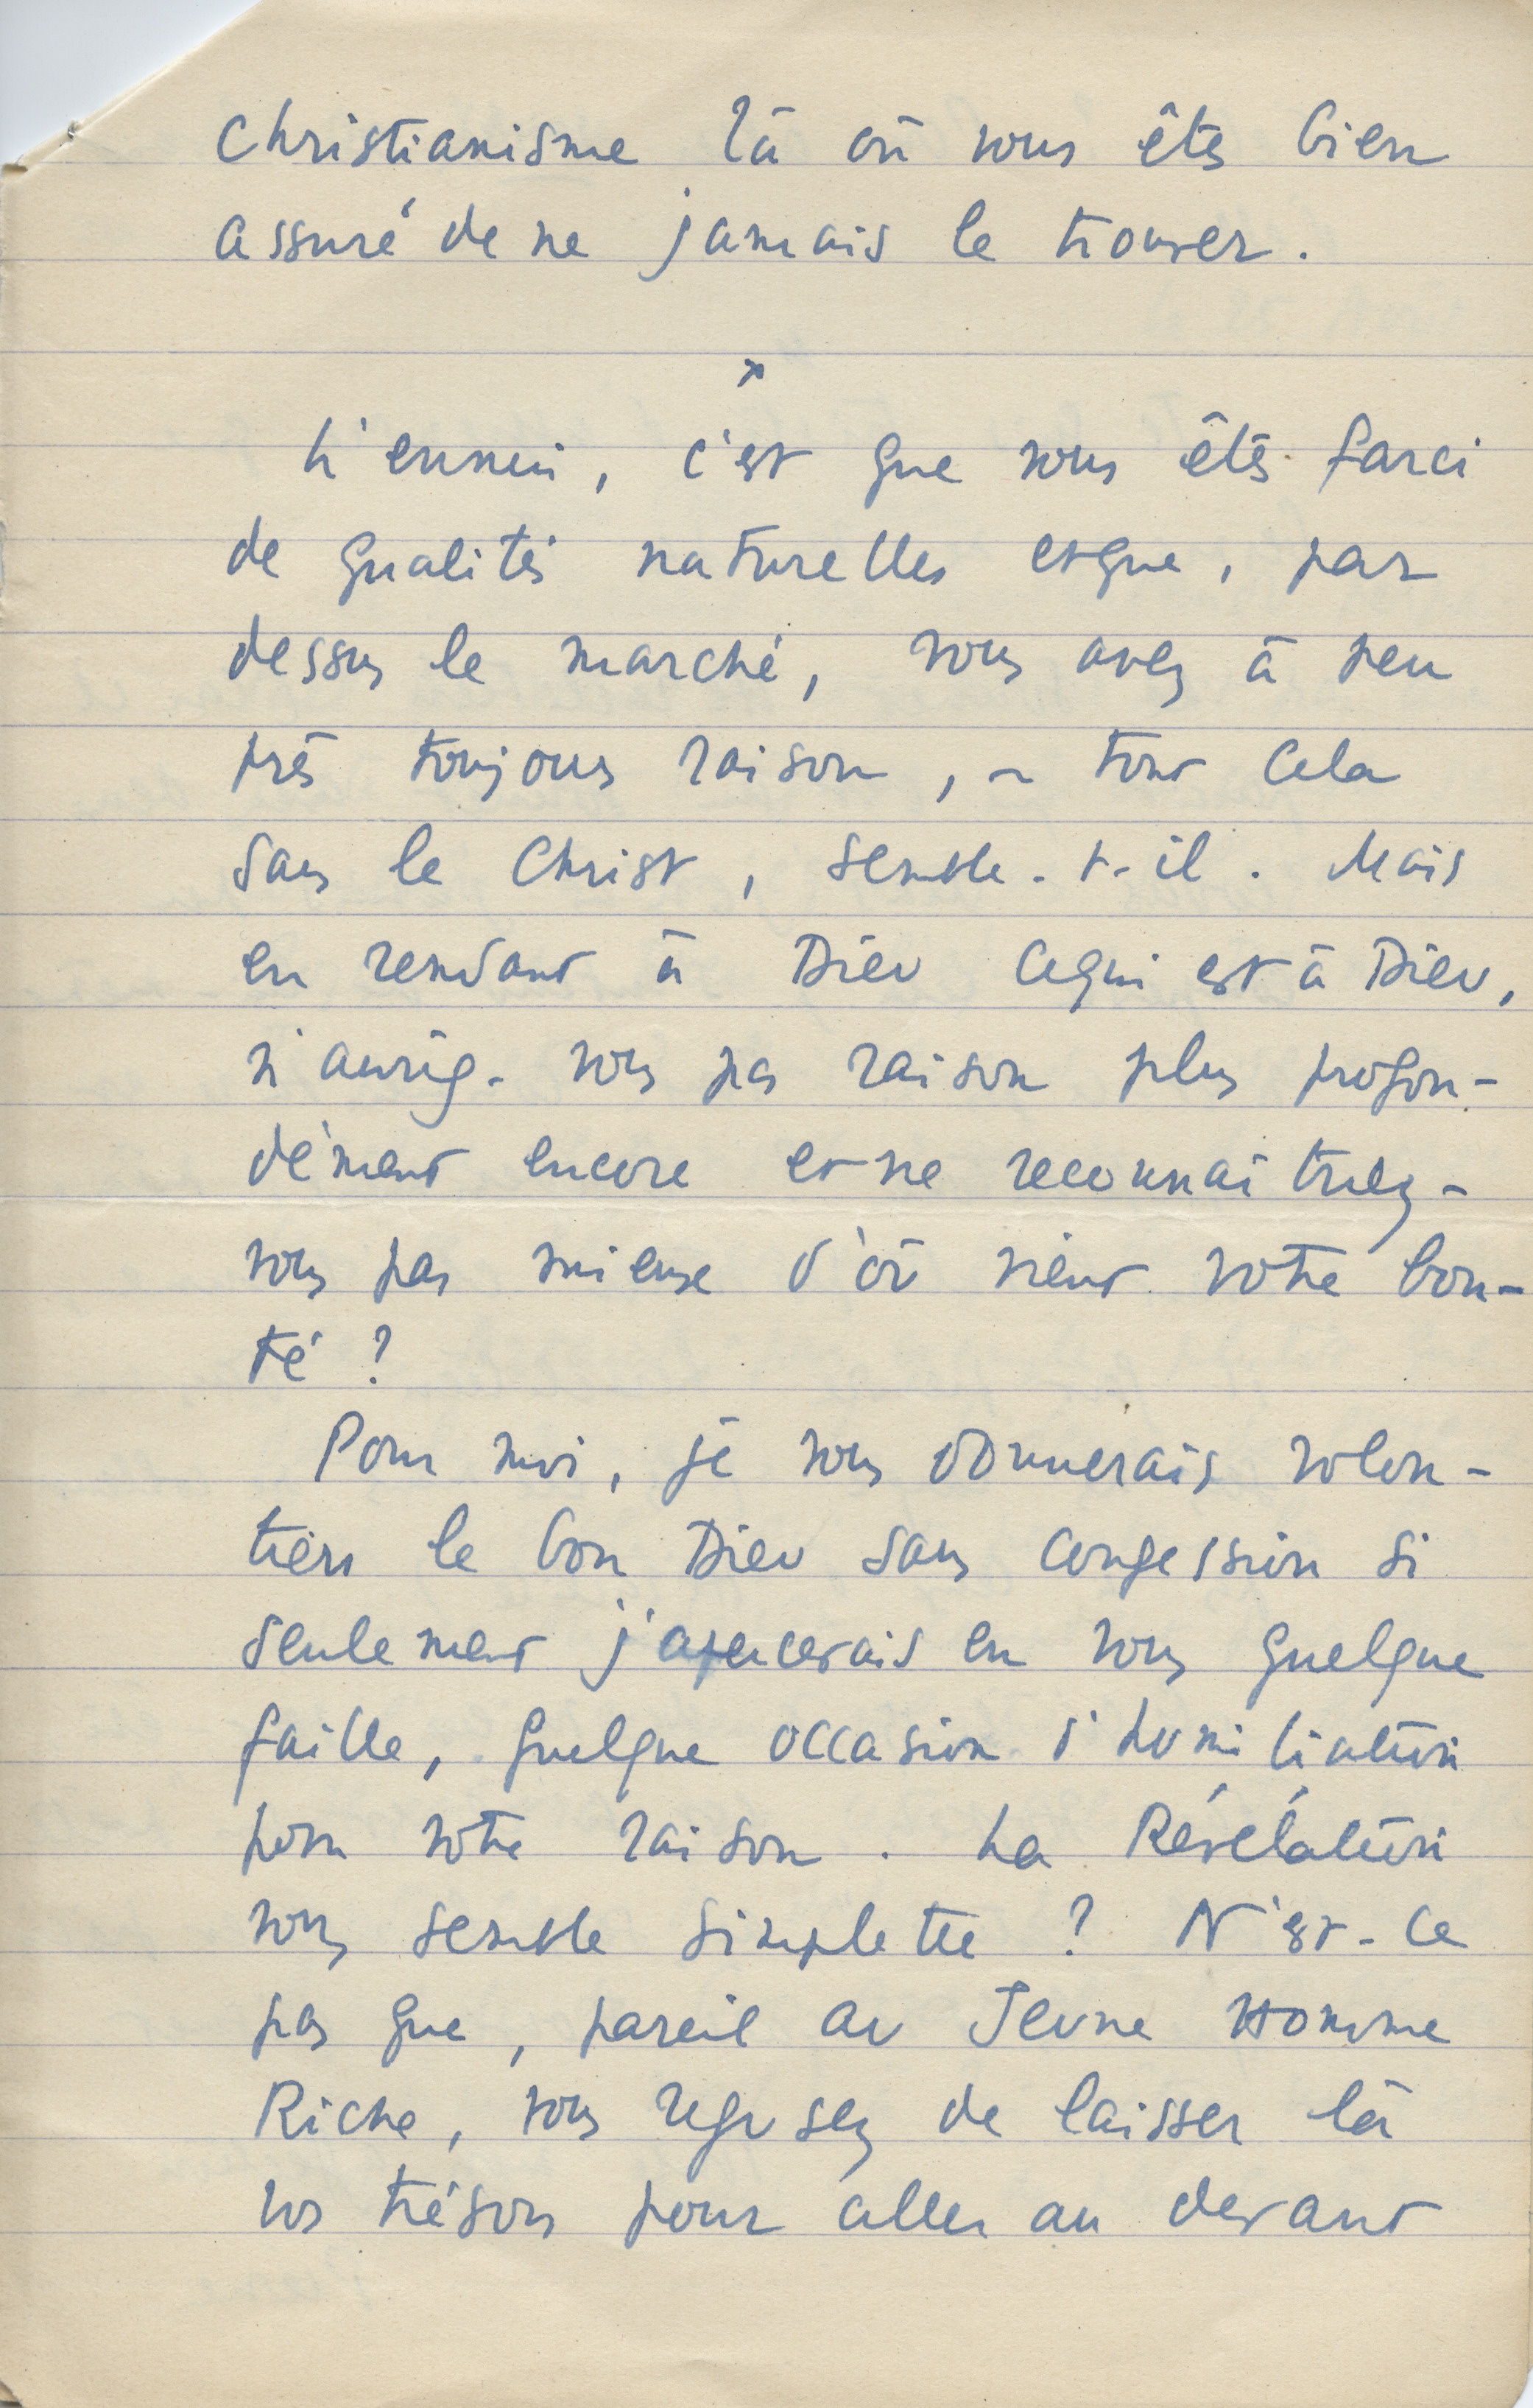 Christianisme là où vous êtes bien
assuré de ne jamais le trouver.
x
L'ennui, c'est que vous êtes farci
de qualités naturelles et que, par
dessus le marché, vous avez à peu
près toujours raison, – tout cela
sans le Christ, semble-t-il. Mais
en rendant à Dieu ce qui est à Dieu,
n'auriez-vous pas raison plus profon-
dément encore et ne reconnaîtriez-
vous pas mieux d'où vient votre bon-
té ?
Pour moi, je vous donnerais volon-
tiers le bon Dieu sans confession si
seulement j'apercevais en vous quelque
faille, quelque occasion d'humiliation
pour votre raison. La Révélation
vous semble simplette ? N'est-ce
pas que, pareil au Jeune Homme
Riche, vous refusez de laisser là
vos trésors pour aller au devant